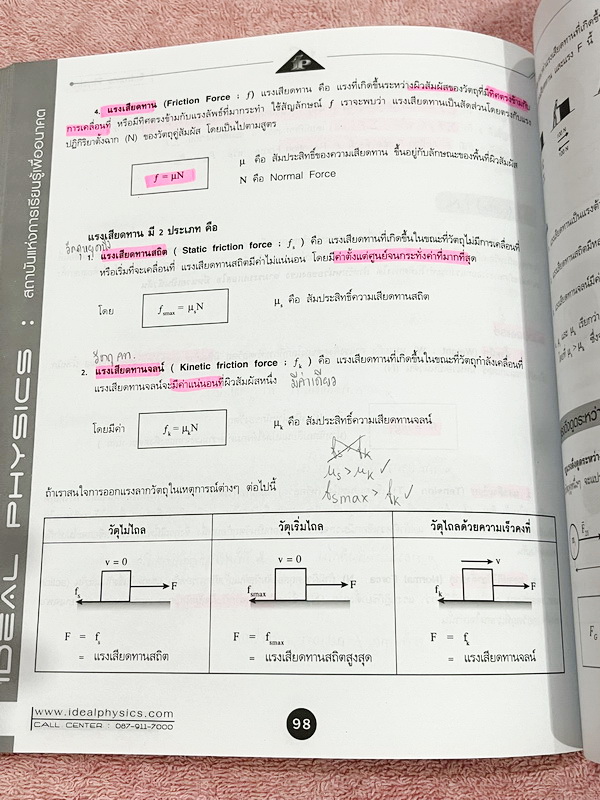 IP
4. แรงเสียดทาน (Friction Force ; f) แรงเสียดทาน คือ แรงที่เกิดขึ้นระหว่างผิวสัมผัสของวัตถุที่มีทิศตรงข้ามกับ
การเคลื่อนที่ หรือมีทิศตรงข้ามกับแรงลัพธ์ที่มากระทำ ใช้สัญลักษณ์ f เราจะพบว่า แรงเสียดทานเป็นสัดส่วนโดยตรงกับแรง
ปฏิกิริยาตั้งฉาก (N) ของวัตถุคู่สัมผัส โดยเป็นไปตามสูตร
f = μN
μ คือ สัมประสิทธิ์ของความเสียดทาน ขึ้นอยู่กับลักษณะของพื้นที่ผิวสัมผัส
N คือ Normal Force
แรงเสียดทาน มี 2 ประเภท คือ
วัตถุหยุดนิ่ง
1. แรงเสียดทานสถิต ( Static friction force ; fs ) คือ แรงเสียดทานที่เกิดขึ้นในขณะที่วัตถุไม่มีการเคลื่อนที่
หรือเริ่มที่จะเคลื่อนที่ แรงเสียดทานสถิตมีค่าไม่แน่นอน โดยมีค่าตั้งแต่ศูนย์จนกระทั่งค่าที่มากที่สุด
โดย fsmax = μsN μs คือ สัมประสิทธิ์ความเสียดทานสถิต
วัตถุ คท.
2. แรงเสียดทานจลน์ ( Kinetic friction force ; fk ) คือ แรงเสียดทานที่เกิดขึ้นในขณะที่วัตถุกำลังเคลื่อนที่
แรงเสียดทานจลน์จะมีค่าแน่นอนที่ผิวสัมผัสหนึ่ง มีค่าเดียว
โดยมีค่า fk = μkN μk คือ สัมประสิทธิ์ความเสียดทานจลน์
fs > fk
μs > μk ✓
fsmax > fk ✓
ถ้าเราสนใจการออกแรงลากวัตถุในเหตุการณ์ต่างๆ ต่อไปนี้
วัตถุไม่ไถล วัตถุเริ่มไถล วัตถุไถลด้วยความเร็วคงที่
v = 0 v = 0 v
fs F fsmax F fk F
F = fs F = fsmax F = fk
= แรงเสียดทานสถิต = แรงเสียดทานสถิตสูงสุด = แรงเสียดทานจลน์
www.idealphysics.com
CALL CENTER : 087-911-7000
98
IDEAL PHYSICS : สถาบันแห่งการเรียนรู้เพื่ออนาคต